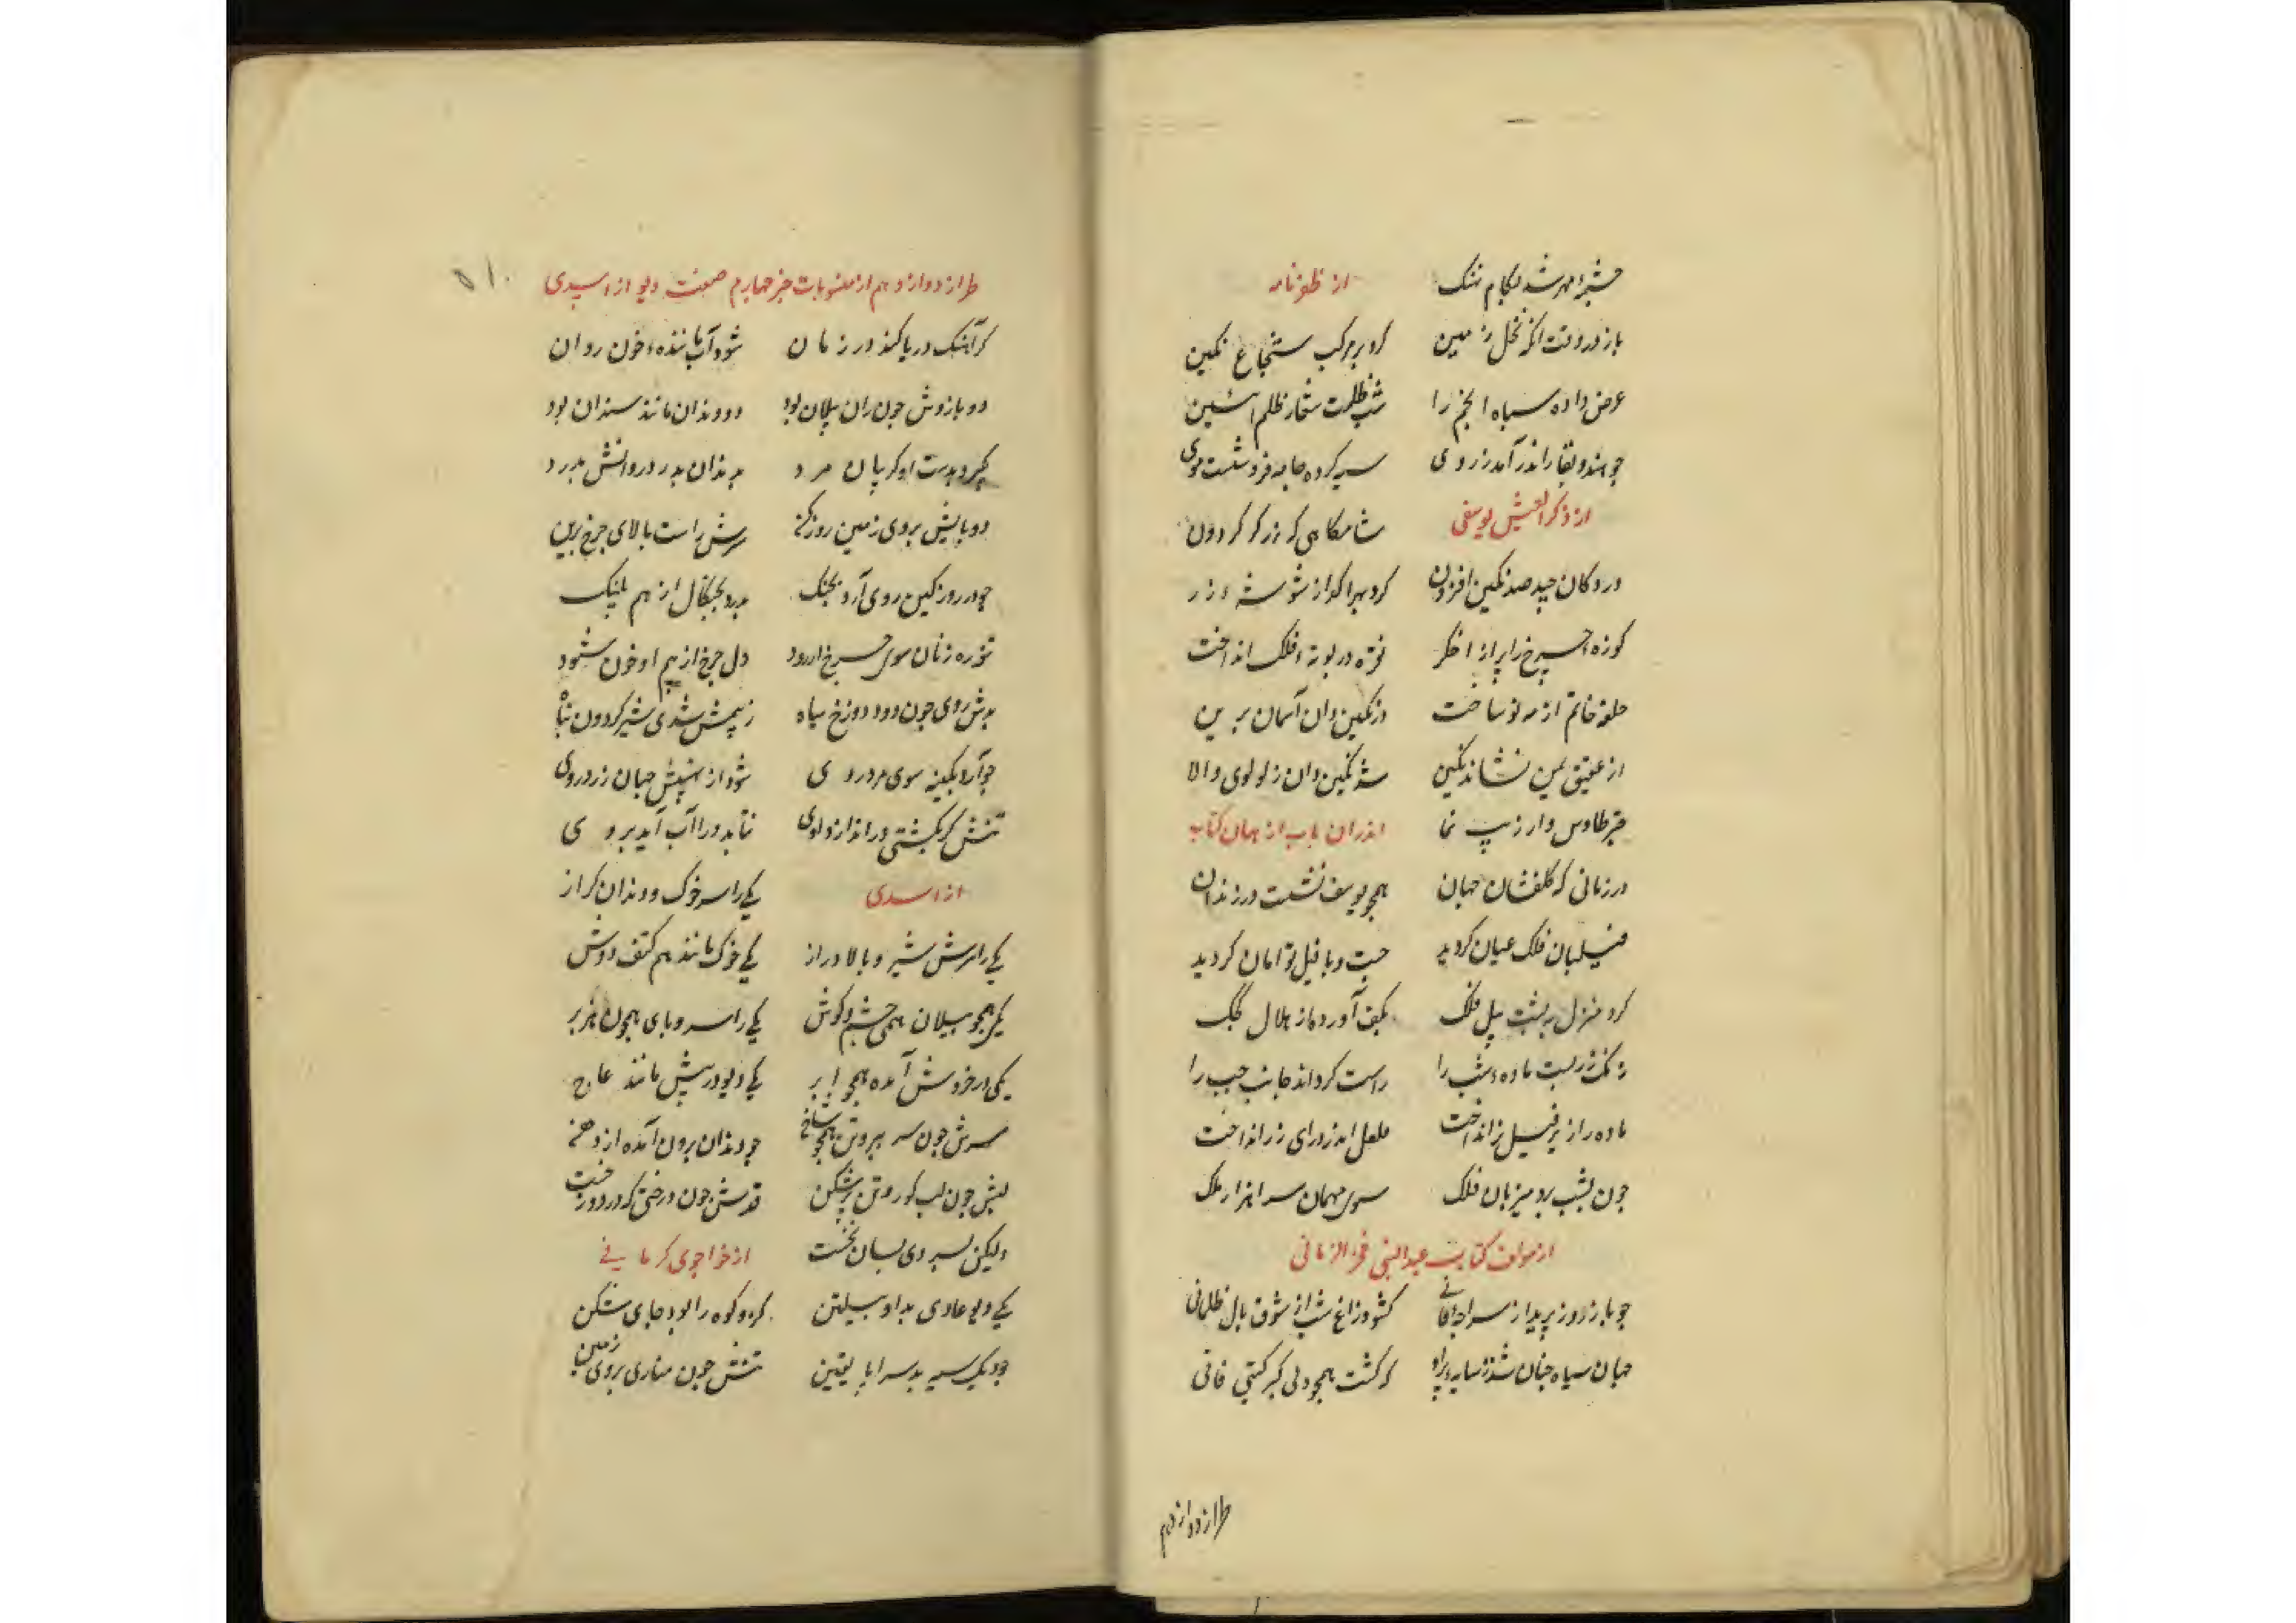 چشمه مهر شد بکام نهنگ از ظفرنامه
باز در وقت اکر نخل زمین کرد بر مرکب شجاع نکین
عرض داده سپاه انجم را شب ظلمت شعار ظلم
چو هندو بقا را اندر آمد ز روی سیه کرده جامه فرو هشت موی
از ذکر العیش یوسفی شامکاهی که زرکر کردون
در دکان چید صد نکین افزون کرد بهر کداز شوشه زر
کوزه چرخ را پر از اخکر نقره در بوته فلک انداخت
حلقه خاتم از مه نو ساخت در نکین دان آسمان برین
از عقیق یمن نشاند نکین شد نکین دان ز لولوی والا
چتر طاوس وار زیب نما اندران باب از همان کتاب
در زمانی که کلفشان جهان همچو یوسف نشست در زندان
فیلبان فلک عیان کردید جست و با فیل توامان کردید
کرد منزل به پشت پیل فلک بکف آورد از هلال کجک
ماده شب را راست کرد اند جانب چپ را
ماده را از بر فیل نر انداخت انداخت
چون بشب برد میزبان فلک سوی مهمان سرا هزار ملک
از مولف کتاب عبدالنبی فخر الزمانی
چو باز روز پرید از سراچه فانی کشود زاغ شب از شوق بال ظلمانی
جهان سیاه چنان شد ز سایه پر او که کشت همچو دل کبر کیتی فانی
طراز دوازدهم
۵۱۰
طراز دوازدهم از منسوبات جزو چهارم صفت دیو از اسدی
کر آهنک دریا کند در زمان شود آب ماننده خون روان
دو بازوش چون ران پیلان بود دو دندان مانند سندان بود
کیرد بدست او کریبان مرد بدندان بدرد روانش بدرد
دو پایش بروی زمین روز کین سرش راست بالای چرخ برین
چو در روز کین روی آرد بجنک بدرد بچنکال از هم پلنک
نعره زنان سوی چرخ ار رود دل چرخ از بیم او خون شود
بدش روی چون دود دوزخ سیاه ز بیمش شدی شیر کردون تباه
چو آرد بکینه سوی مرد روی شود از نهیبش جهان زرد روی
تنش کر بکشتی در انداز و اوی نتابد ورا آب آید بروی
از اسدی یکی را سر خوک و دندان کراز
یکی را سرش شیر و بالا دراز یکی خوک مانند هم کتف و دوش
یکی همچو پیلان همی چشم و کوش یکی را سر و پای همچون هزبر
یکی در خروش آمده همچو ابر یکی دیو در پیش مانند عاج
سرش چون سر همچو شاخ چو دندان برون آمده از دهن
لبش چون لب کور و تن پر شکن قدش چون درختی که در دوزخست
ولیکن بسردی بسان یخست از خواجوی کرمانی
یکی دیو عادی بد او پیلتن کزو کوه را بود جای شکن
چو دیک سیه بد سراپا یقین تنش چون مناری بروی زمین